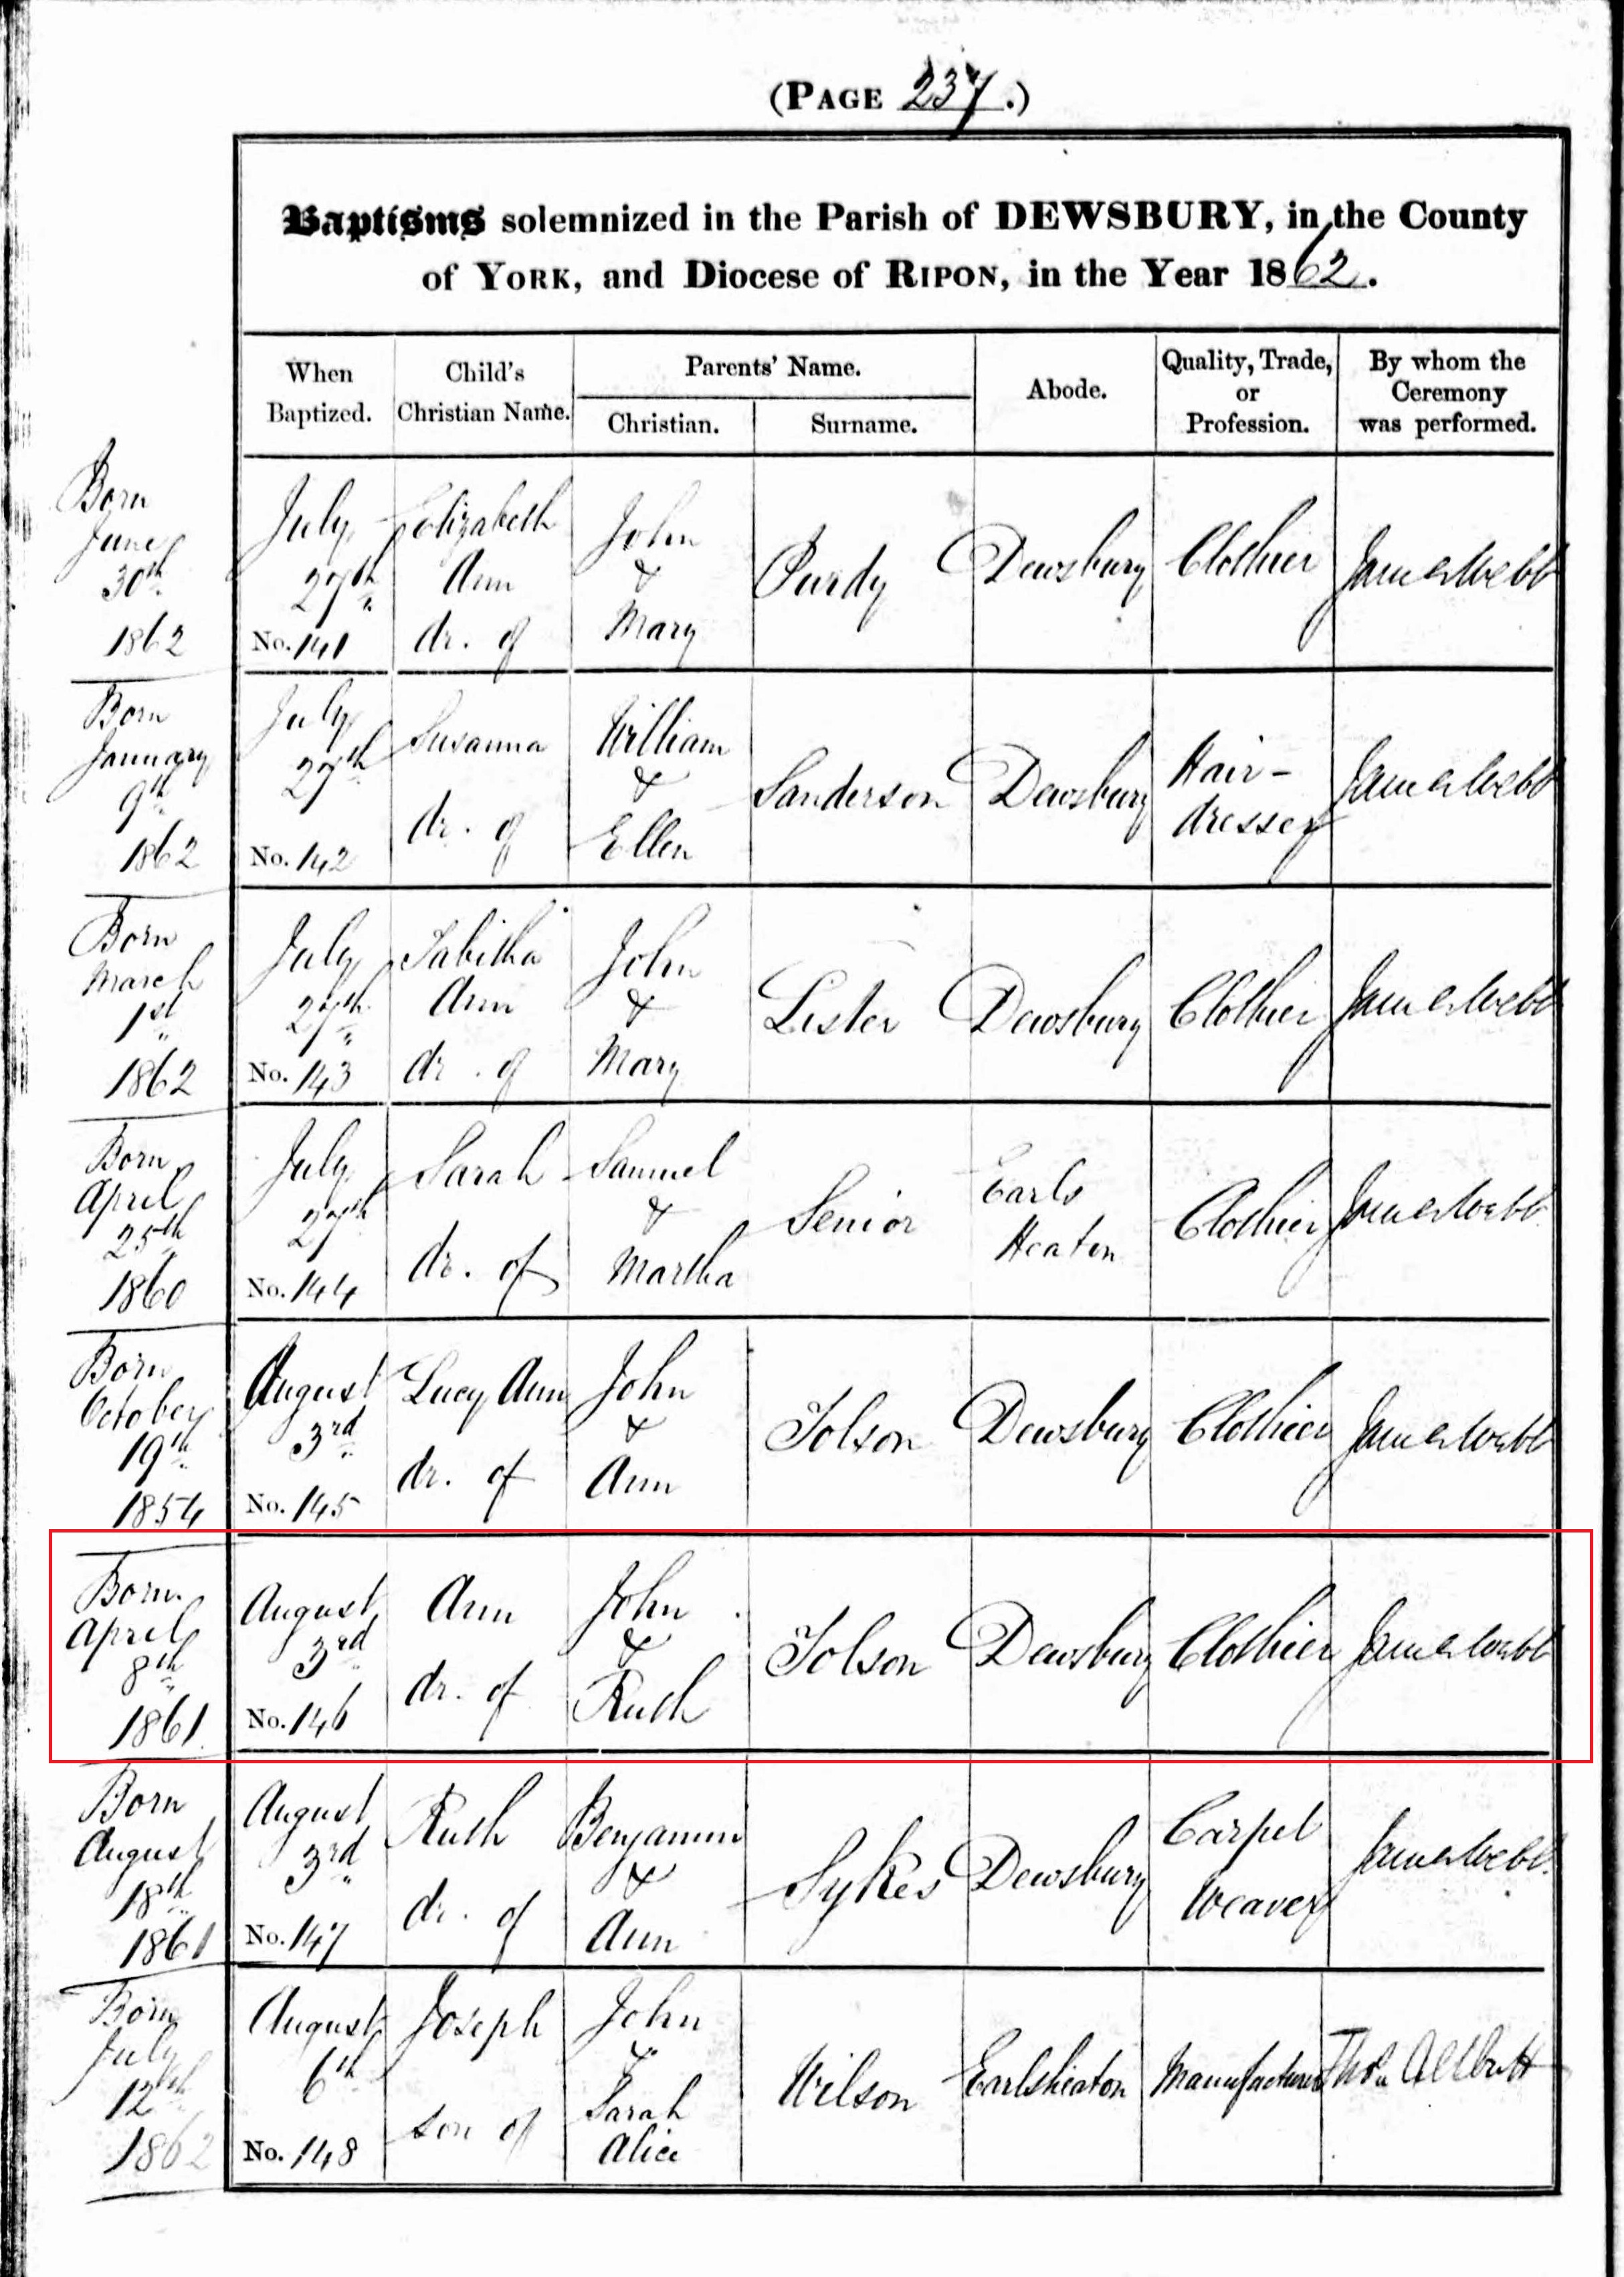 (PAGE 237.)
Baptisms solemnized in the Parish of DEWSBURY, in the County
of YORK, and Diocese of RIPON, in the Year 1862.
When Baptized.
Child's Christian Name.
Parents' Name.
Christian.
Surname.
Abode.
Quality, Trade, or Profession.
By whom the Ceremony was performed.
Born
June
30th
1862
July
27th
No. 141
Elizabeth
Ann
dr. of
John
&
Mary
Purdy
Dewsbury
Clothier
James Webb
Born
January
9th
1862
July
27th
No. 142
Susanna
dr. of
William
&
Ellen
Sanderson
Dewsbury
Hair-
dresser
James Webb
Born
March
1st
1862
July
27th
No. 143
Tabitha
Ann
dr. of
John
&
Mary
Lister
Dewsbury
Clothier
James Webb
Born
April
25th
1860
July
27th
No. 144
Sarah
dr. of
Samuel
&
Martha
Senior
Earls
Heaton
Clothier
James Webb
Born
October
19th
1854
August
3rd
No. 145
Lucy Ann
dr. of
John
&
Ann
Tolson
Dewsbury
Clothier
James Webb
Born
April
8th
1861
August
3rd
No. 146
Ann
dr. of
John
&
Ruth
Tolson
Dewsbury
Clothier
James Webb
Born
August
18th
1861
August
3rd
No. 147
Ruth
dr. of
Benjamin
&
Ann
Sykes
Dewsbury
Carpet
Weaver
James Webb
Born
July
12th
1862
August
6th
No. 148
Joseph
son of
John
&
Sarah
Alice
Wilson
Earlsheaton
Manufacturer
Thos. Allbutt